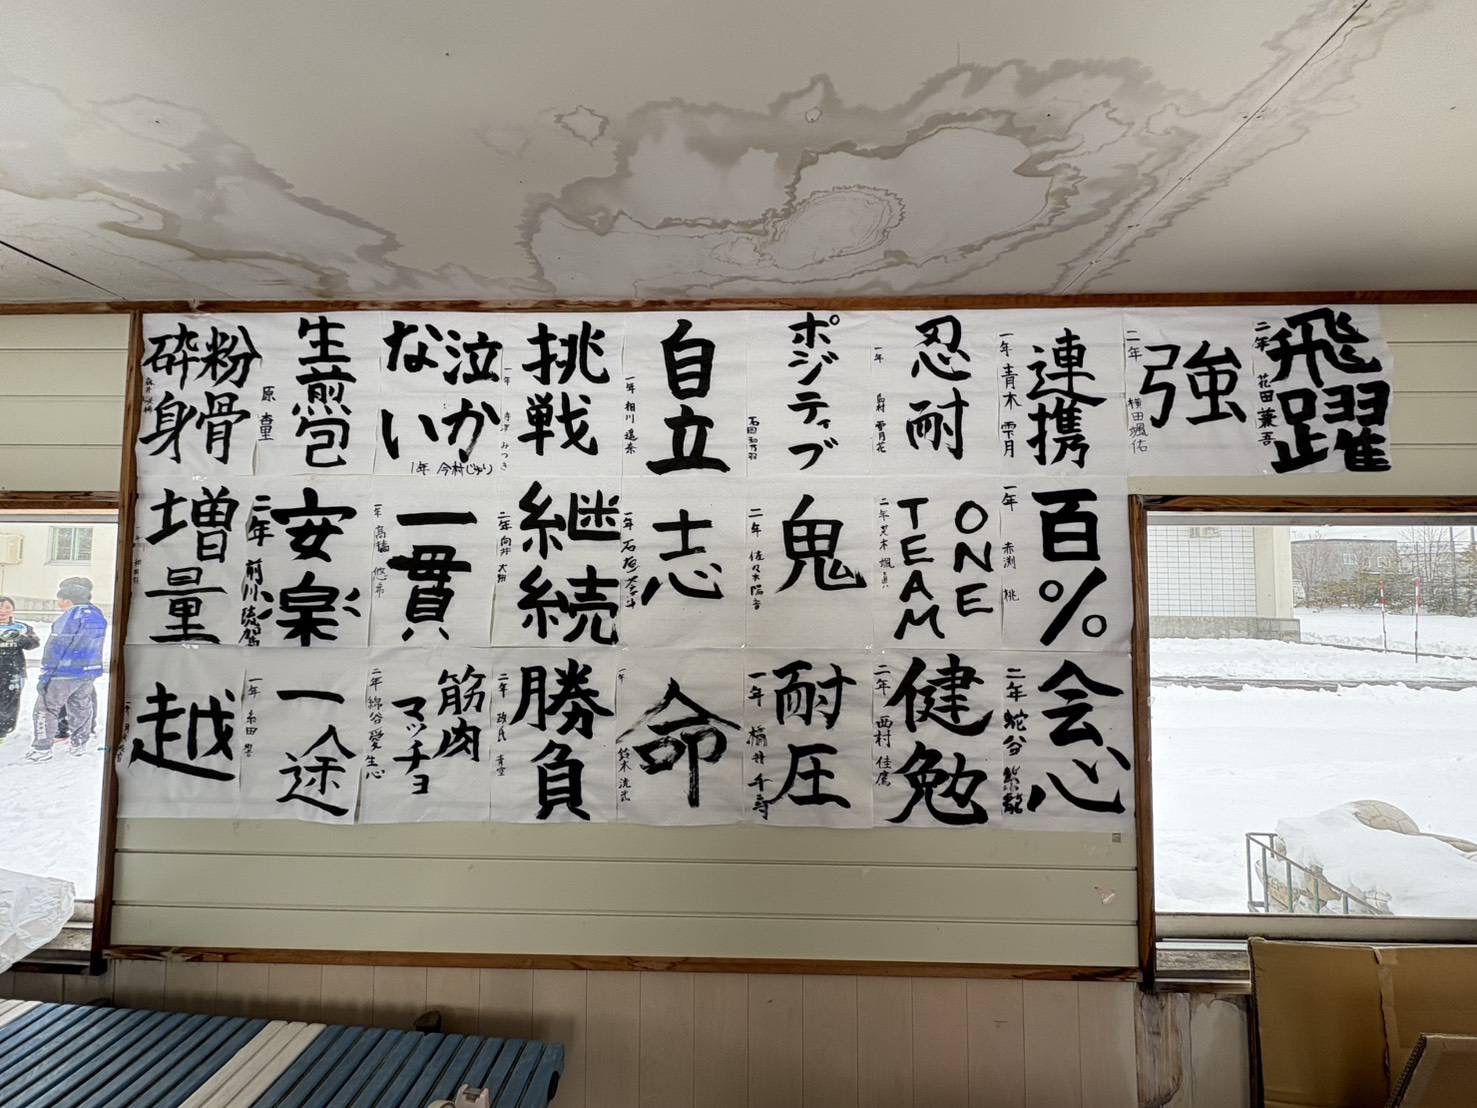 飛躍
二年 花田兼吾
強
二年 横田颯佑
連携
一年 青木 雫月
忍耐
一年 島村 雪月花
ポジティブ
自立
一年 相川
挑戦
一年 みつき
泣かない
1年 今村じゅり
生煎包
原 童
粉骨砕身
百%
一年 赤渕 桃
ONE TEAM
二年 荒木 颯真
鬼
二年 佐々木陽音
志
一年 石垣
継続
二年 向井 大翔
一貫
一年 高橋 悠希
安楽
二年 前川 陵駕
増量
会心
二年 蛇谷 紫龍
健勉
二年 西村 佳鷹
耐圧
一年 桶井 千寿
命
一年 鈴木 流武
勝負
二年 政氏 青空
筋肉マッチョ
二年 綿谷愛生心
一途
一年 糸田
越